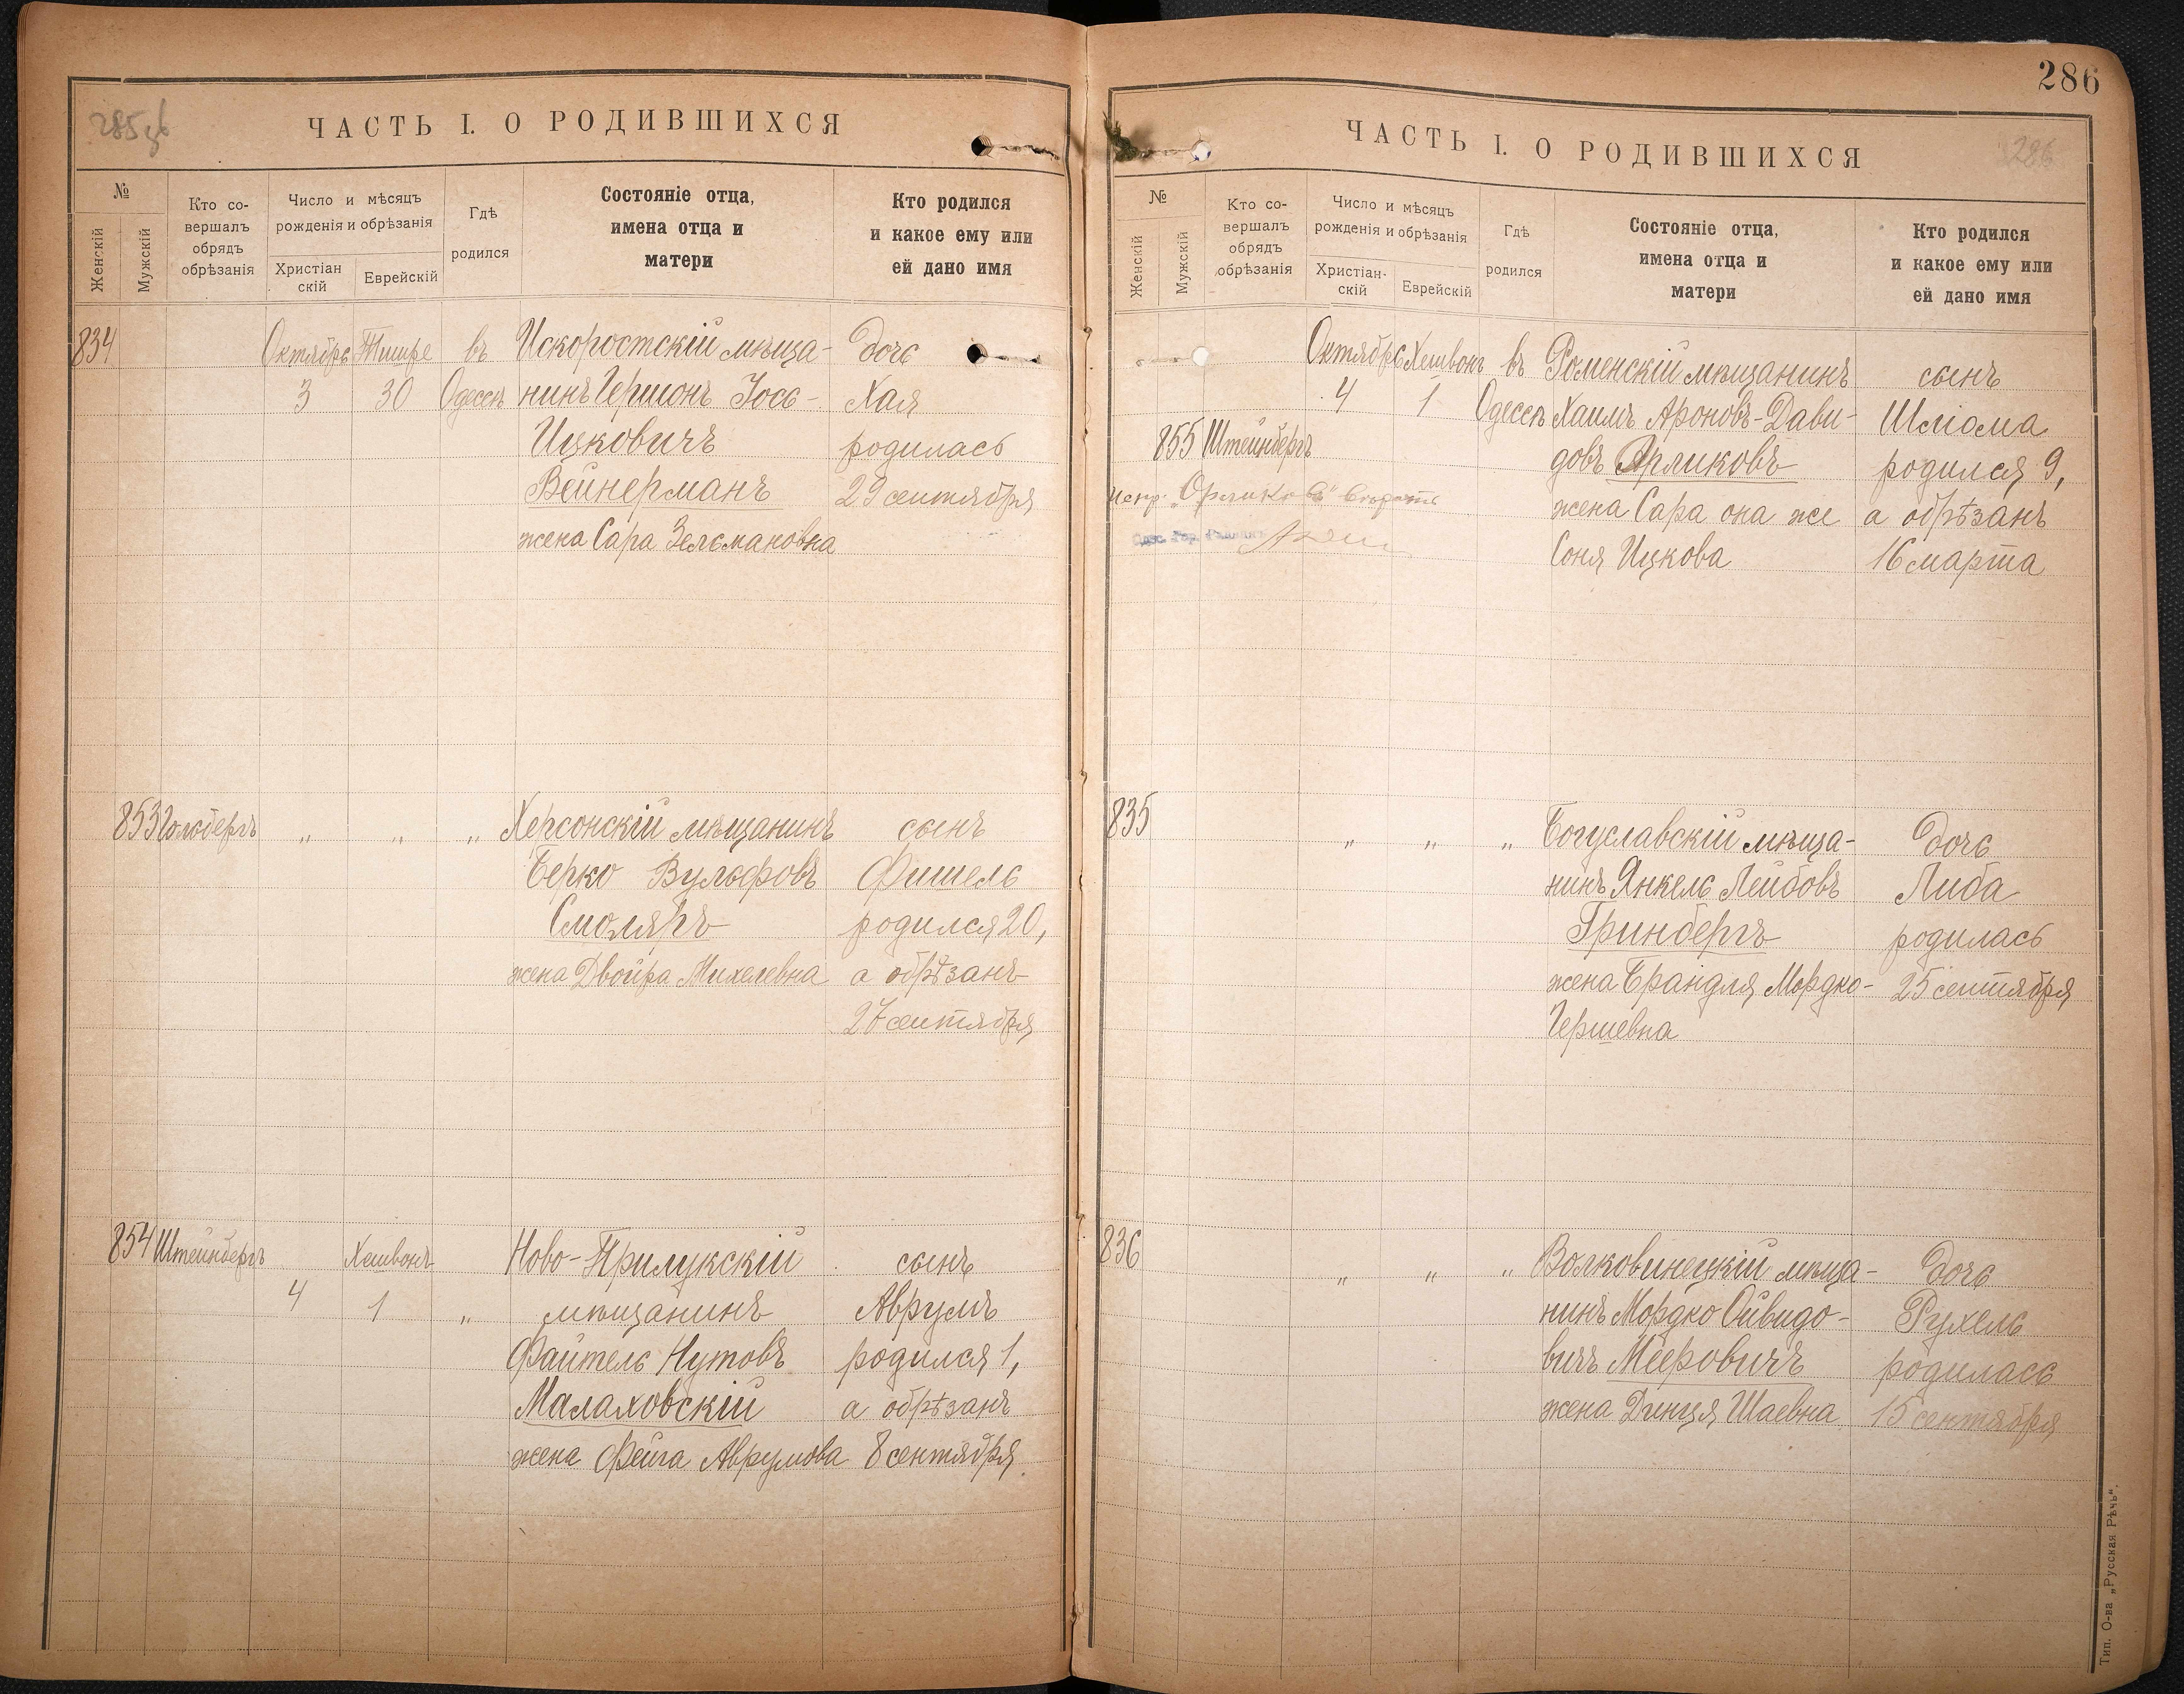 285об
ЧАСТЬ I. О РОДИВШИХСЯ
№
Женскій
Мужскій
Кто со-
вершалъ
обрядъ
обрѣзанія
Число и мѣсяцъ
рожденія и обрѣзанія
Христіан
скій
Еврейскій
Гдѣ
родился
Состояніе отца,
имена отца и
матери
Кто родился
и какое ему или
ей дано имя
834 Октябрь Тишре въ Искоростскій мѣща- дочь
3 30 Одессѣ нинъ Гершонъ Іось- Хая
Ицковичъ родилась
Вейнерманъ 29 сентября
жена Сара Зельмановна
853 Голдбергъ „ „ „ Херсонскій мѣщанинъ сынъ
Берко Вульфовъ Фишель
Смоляръ родился 20,
жена Двойра Михелевна а обрѣзанъ
27 сентября
854 Штейнбергъ Хешвонъ Ново-Прилукскій сынъ
4 1 „ мѣщанинъ Аврумъ
Файтель Нутовъ родился 1,
Малаховскій а обрѣзанъ
жена Фейга Аврумова 8 сентября
286
ЧАСТЬ I. О РОДИВШИХСЯ
286
№
Женскій
Мужскій
Кто со-
вершалъ
обрядъ
обрѣзанія
Число и мѣсяцъ
рожденія и обрѣзанія
Христіан-
скій
Еврейскій
Гдѣ
родился
Состояніе отца,
имена отца и
матери
Кто родился
и какое ему или
ей дано имя
Октябрь Хешвонъ въ Роменскій мѣщанинъ сынъ
4 1 Одессѣ Хаимъ Ароновъ-Дави- Шліома
855 Штейнбергъ довъ Орликовъ родился 9,
испр. „Орликовъ" жена Сара она же а обрѣзанъ
Одес. Гор. Соня Ицкова 16 марта
835 „ „ „ Богуславскій мѣща- дочь
нинъ Янкель Лейбовъ Либа
Гринбергъ родилась
жена Брандля Мордко- 25 сентября
Гершевна
836 „ „ „ Волковинецкій мѣща- дочь
нинъ Мордко Ойвидо- Рухель
вичъ Мееровичъ родилась
жена Динця Шаевна 15 сентября
Тип. О-ва „Русская Рѣчь".